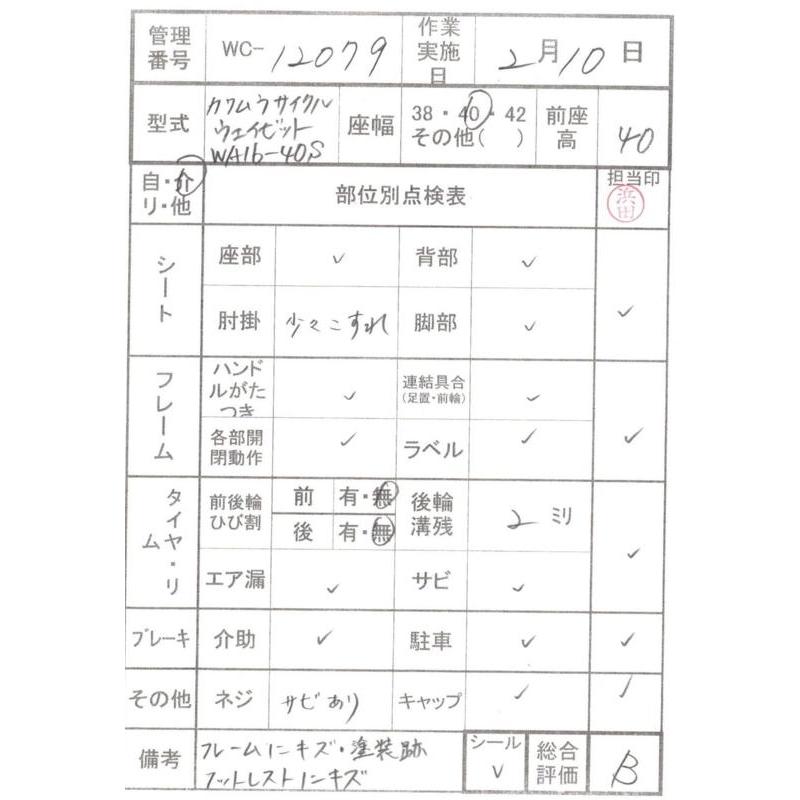 管理番号 WC-12079 作業実施日 2月10日
型式 カワムラサイクル ウェイビット WA16-40S 座幅 38・40・42 その他( ) 前座高 40
自・介 リ・他 部位別点検表 担当印 浜田
シート 座部 ✓ 背部 ✓ ✓
肘掛 少々こすれ 脚部 ✓
フレーム ハンドルがたつき ✓ 連結具合(足置・前輪) ✓ ✓
各部開閉動作 ✓ ラベル ✓
タイヤ・リム 前後輪ひび割 前 有・無 後 有・無 後輪溝残 2 ミリ ✓
エア漏 ✓ サビ ✓
ブレーキ 介助 ✓ 駐車 ✓ ✓
その他 ネジ サビあり キャップ ✓ ✓
備考 フレームにキズ・塗装跡 フットレストにキズ シール ✓ 総合評価 B